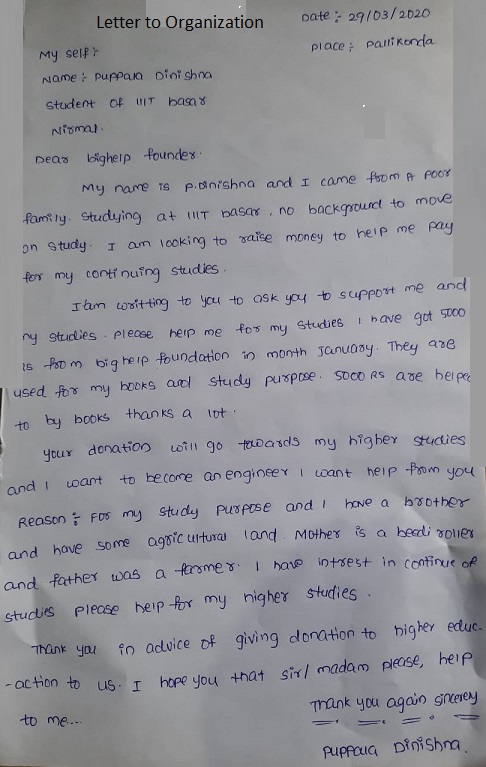 Letter to Organization
Date :- 29/03/2020
Place : Pallikonda
My self :-
Name :- Puppala Dinishna
Student of IIIT basar
Nirmal.
Dear bighelp founder.
My name is P.Dinishna and I came from A poor
family. Studying at IIIT basar, no background to move
on study. I am looking to raise money to help me pay
for my continuing studies.
I am writting to you to ask you to support me and
my studies. Please help me for my studies I have got 5000
rs from big help foundation in month January. They are
used for my books and study purpose. 5000 RS are helped
to by books thanks a lot.
your donation will go towards my higher studies
and I want to become an engineer I want help from you
Reason :- For my study purpose and I have a brother
and have some agricultural land. Mother is a beedi roller
and father was a farmer. I have intrest in continue of
studies please help for my higher studies.
Thank you in advice of giving donation to higher educ-
-action to us. I hope you that sir/ madam please, help
to me...
Thank you again sincerely
Puppala Dinishna.